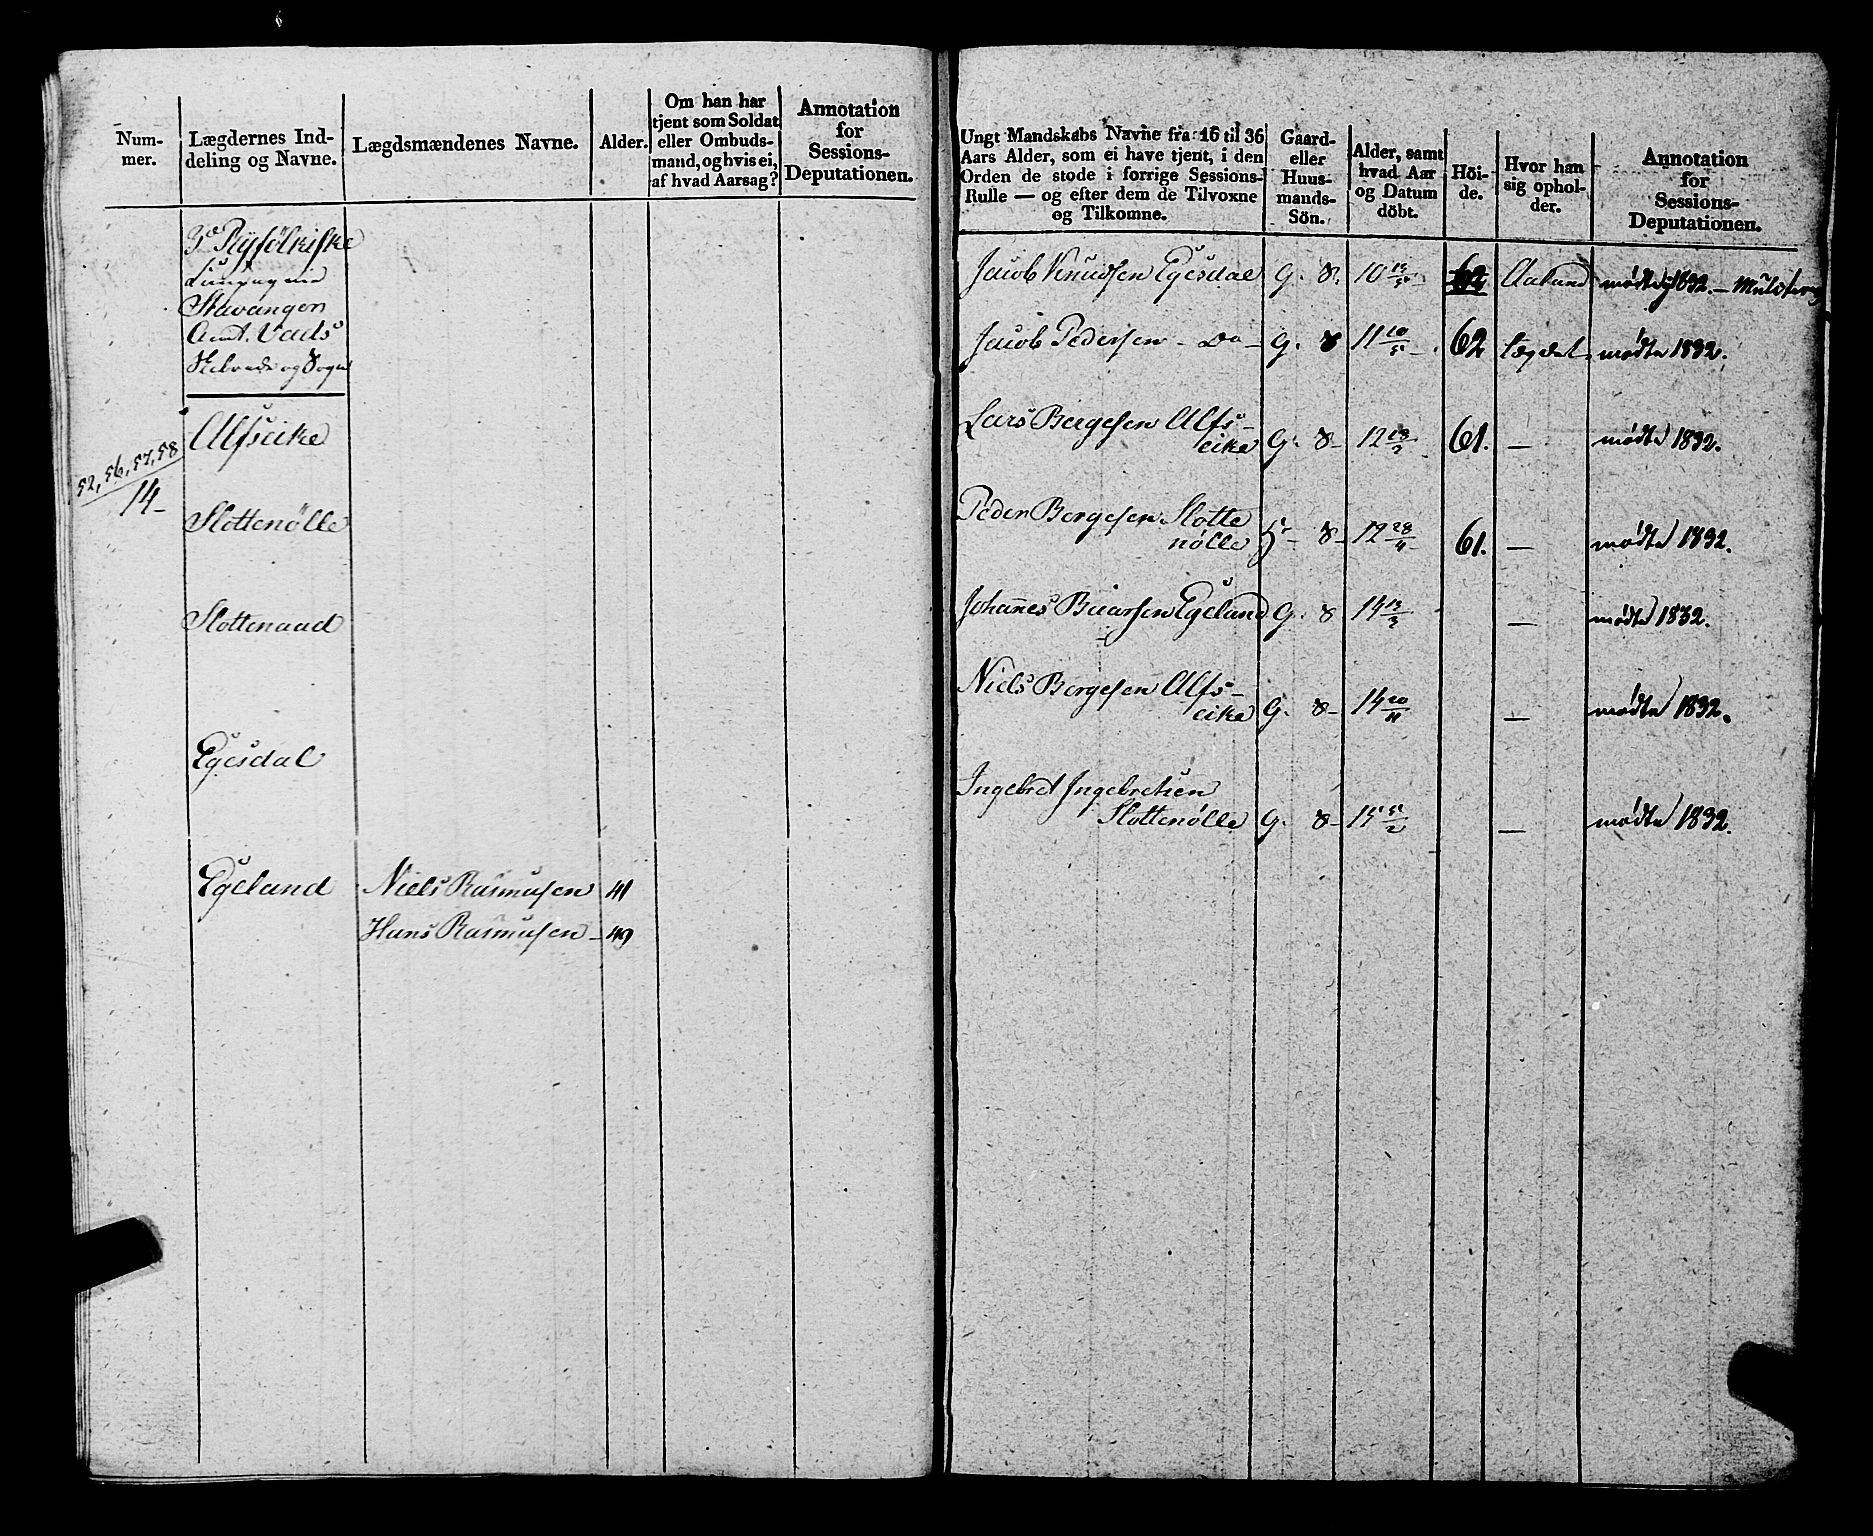 6
Num-
mer.
Lægdernes Ind-
deling og Navne.
Lægdsmændenes Navne.
Alder.
Om han har
tjent som Soldat
eller Ombuds-
mand, og hvis ei,
af hvad Aarsag?
Annotation
for
Sessions-
Deputationen.
Ryfølkiske
Compagnie
Stavanger
Amt. Vads
Skibrede og Sogn
Alfseike
52, 56, 57, 58
14-
Slottenølle
Slottenaad
Egesdal
Egeland
Niels Rasmusen 41
Hans Rasmusen - 49
Ungt Mandskabs Navne fra 16 til 36
Aars Alder, som ei have tjent, i den
Orden de stode i forrige Sessions-
Rulle — og efter dem de Tilvoxne
og Tilkomne.
Gaard-
eller
Huus-
mands-
Sön.
Alder, samt
hvad Aar
og Datum
döbt.
Höi-
de.
Hvor han
sig ophol-
der.
Annotation
for
Sessions-
Deputationen.
Jacob Knudsen Egesdal G. S. 10 Aaland mødte 1832.
Jacob Pedersen - Do - G. S 11 10/5 62 Lægdet mødte 1832.
Lars Bergesen Alfs-
eike G. S- 12 61. — mødte 1832.
Peder Bergesen Slotte
nølle S- 12 28/4 61. — mødte 1832.
Johannes Egeland G. S 14 — mødte 1832.
Niels Bergesen Alfs-
eike G. S- 14 20/11 — mødte 1832.
Ingebret Ingebretsen
Slottenølle G. S- 15 5/2 — mødte 1832.